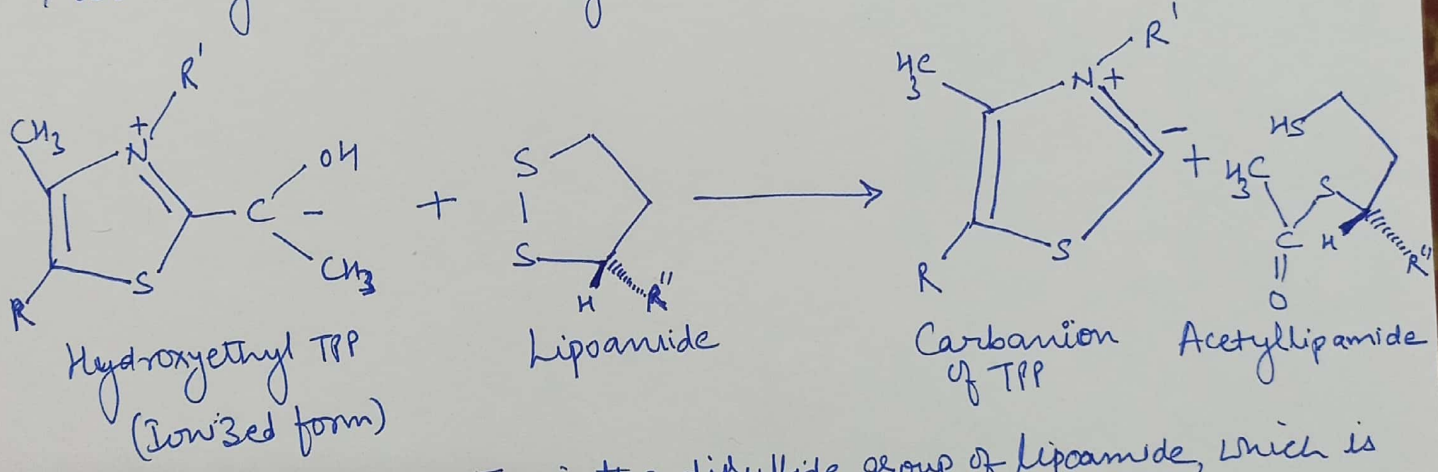 R'
CH3
+
N
OH
C -
S
CH3
R
+
S
S
H
R"
R'
H3C
N+
-
S
R
+
HS
H3C
S
C
H
R"
O
Hydroxyethyl TPP
(Ionized form)
Lipoamide
Carbanion
of TPP
Acetyllipamide
group of lipoamide, which is